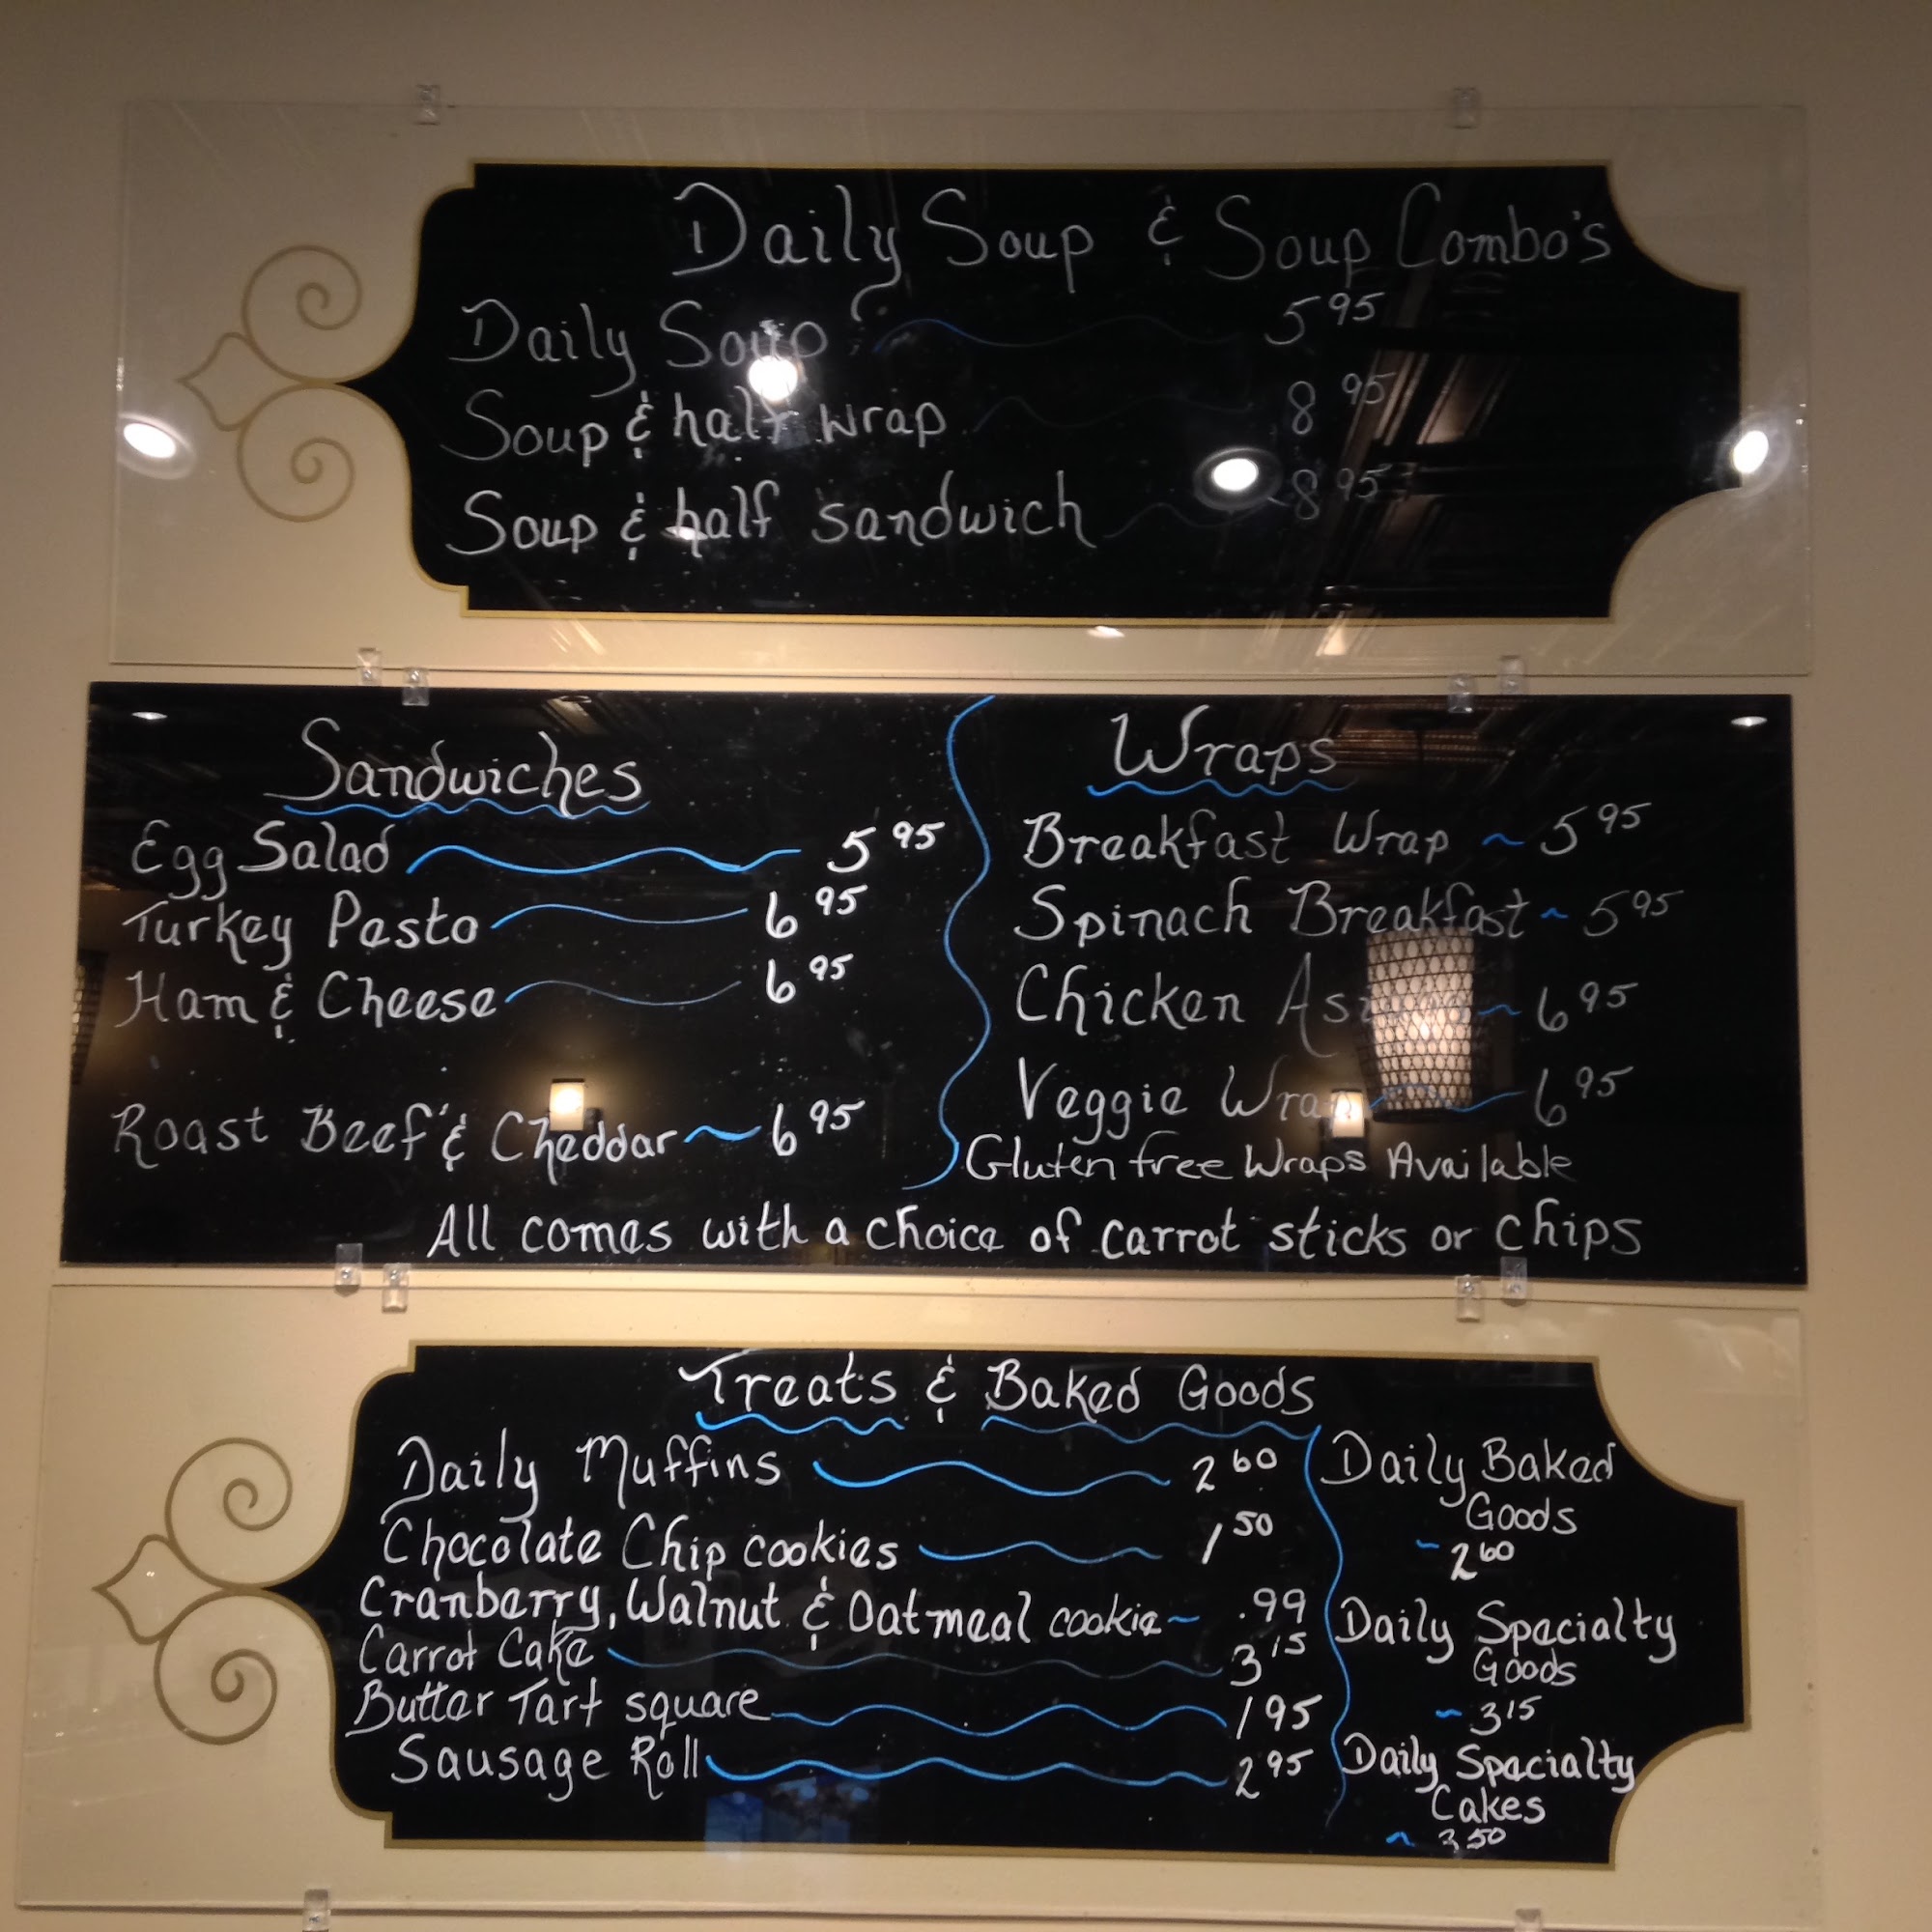 Daily Soup & Soup Combo's
Daily Soup 5 95
Soup & half wrap 8 95
Soup & half sandwich 8 95
Sandwiches
Egg Salad 5 95
Turkey Pesto 6 95
Ham & Cheese 6 95
Roast Beef & Cheddar 6 95
Wraps
Breakfast Wrap ~ 5 95
Spinach Breakfast ~ 5 95
Chicken ~ 6 95
Veggie Wrap 6 95
Gluten free Wraps Available
All comes with a choice of carrot sticks or chips
Treats & Baked Goods
Daily Muffins 2 60
Chocolate Chip cookies 1 50
Cranberry, Walnut & Oatmeal cookie ~ .99
Carrot Cake 3 15
Butter Tart square 1 95
Sausage Roll 2 95
Daily Baked
Goods
~ 2 60
Daily Specialty
Goods
~ 3 15
Daily Specialty
Cakes
~ 3 50